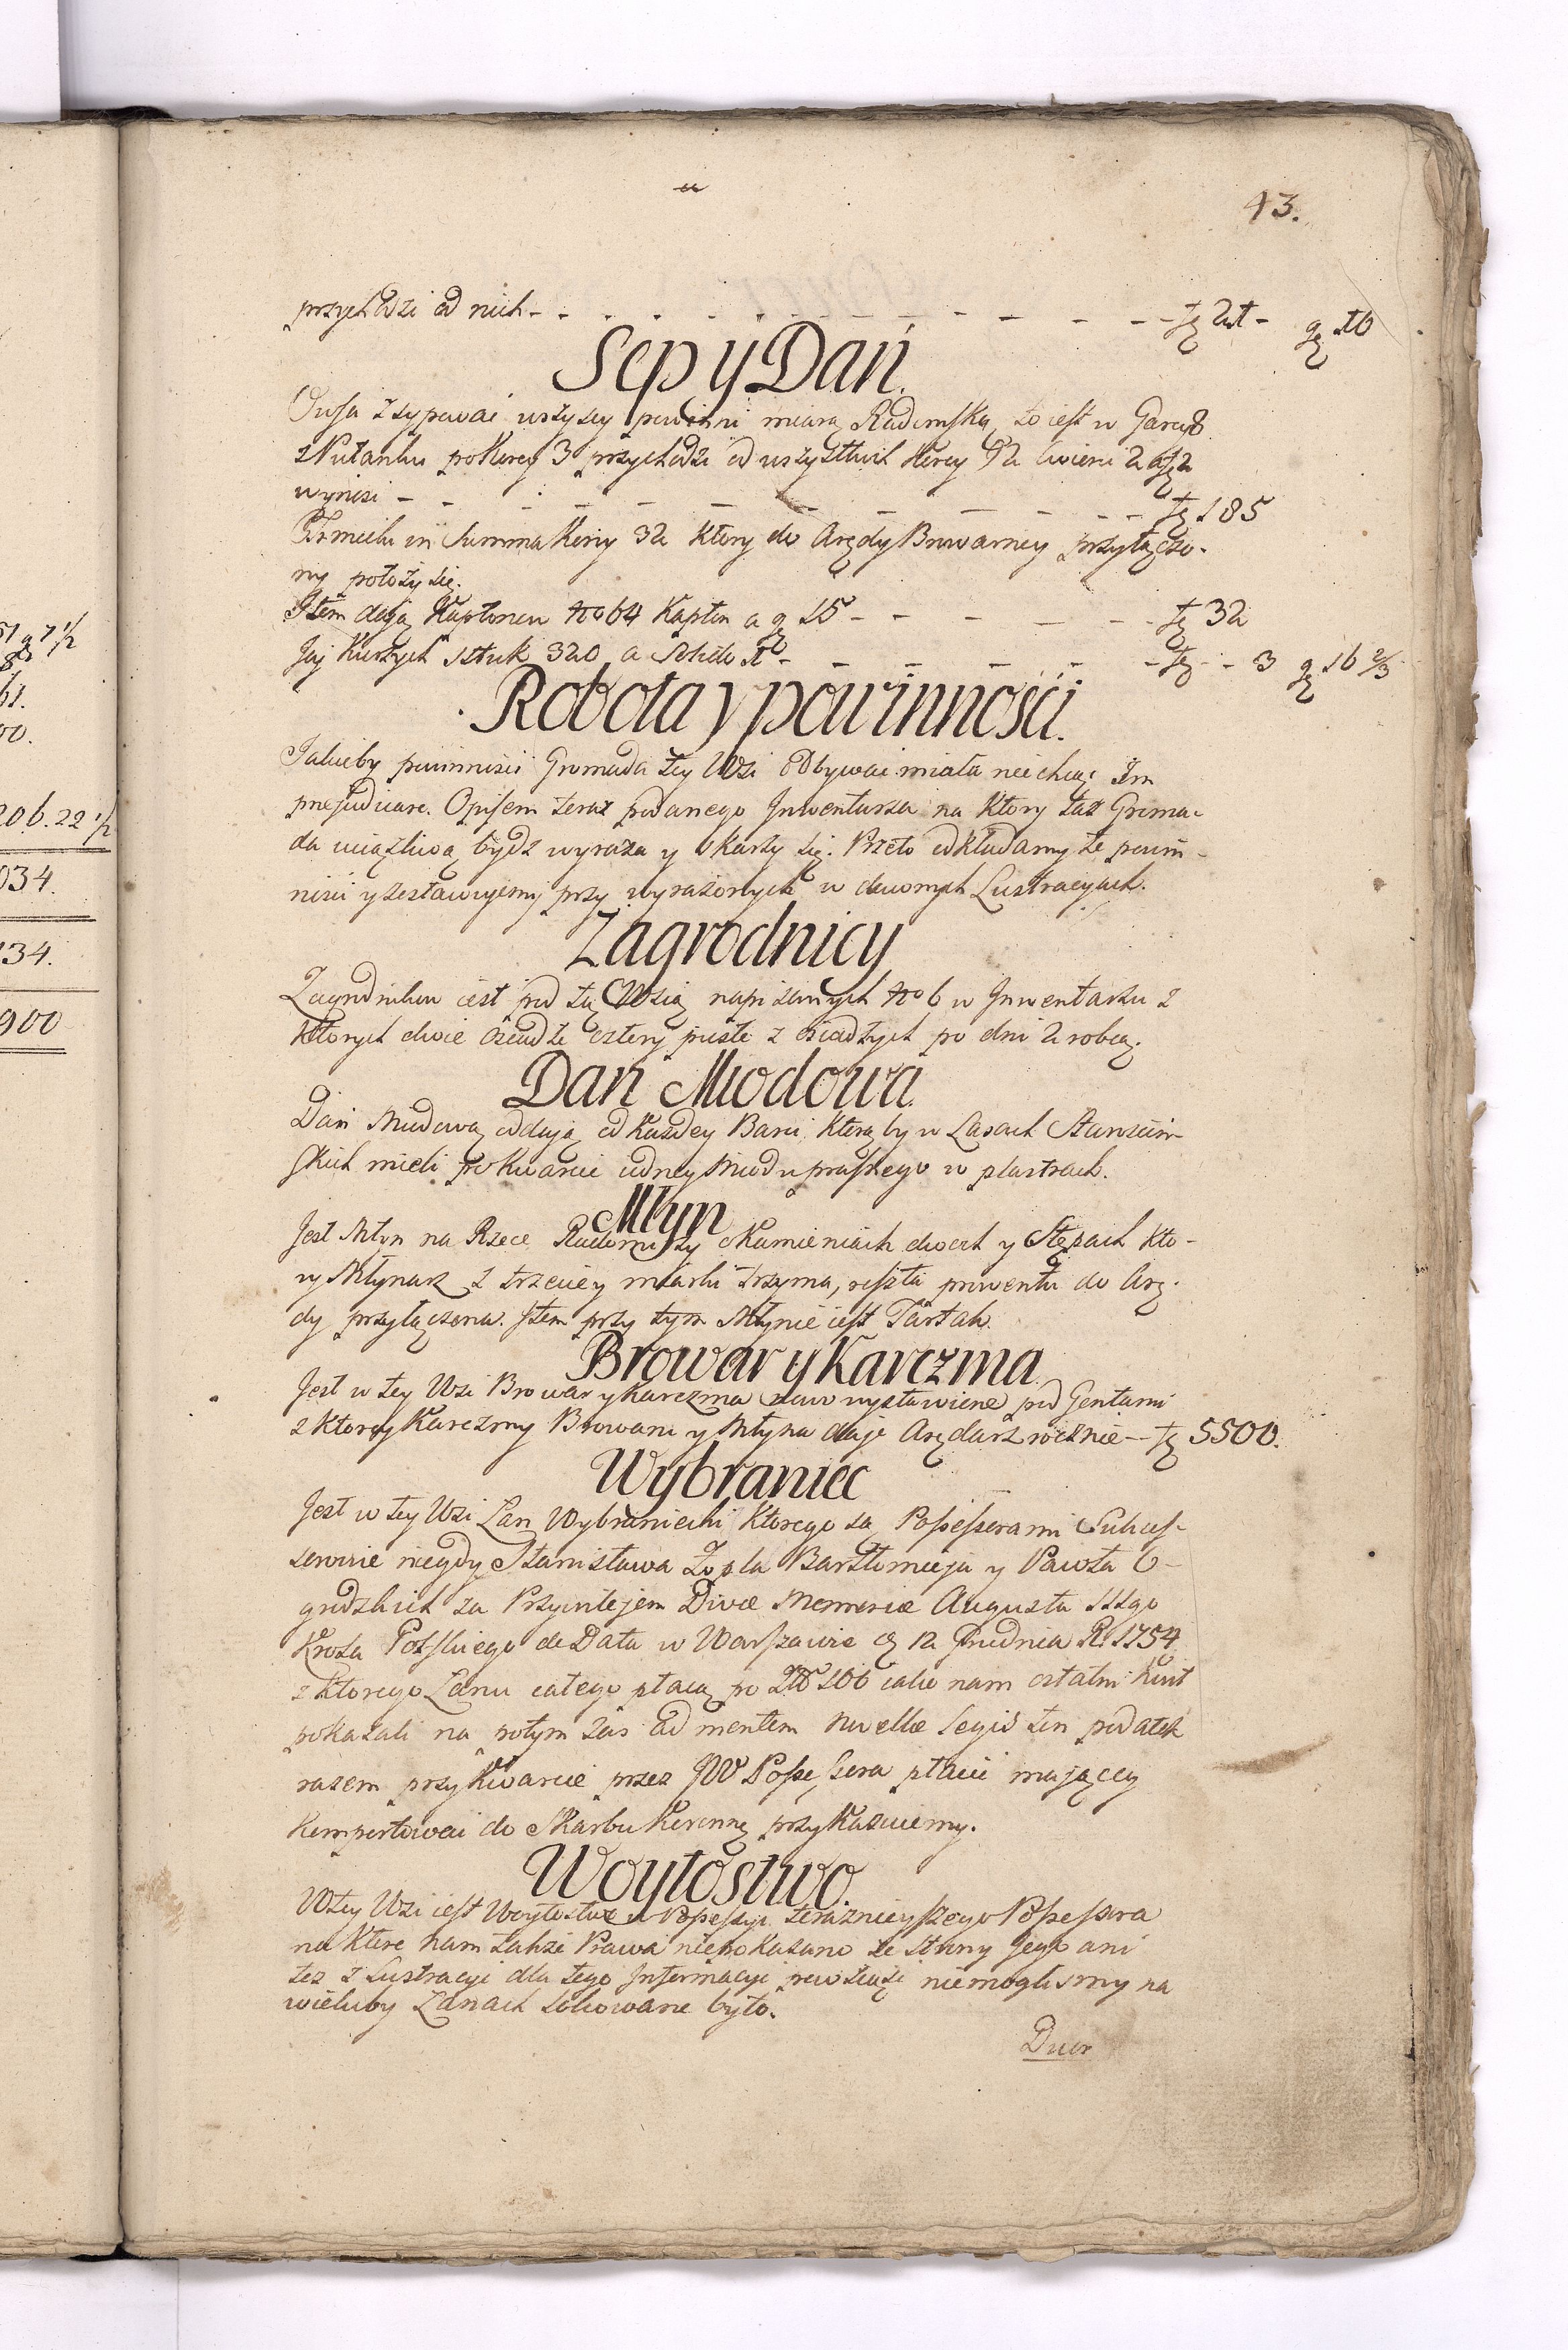 43.
przychodzi od nich - - - - - - - - fl 21 - gr 10
Sep y Dań.
Owsa zsypować wszyscy powinni miarą Radomską, to iest w Garcy 8
z Pułanku po Korcy 3 przychodzi od wszystkich Korcy 92 ćwierci 2 a fl 2
wynosi - - - - - - - - fl 185
Chmielu in Summa Korcy 32 który do Arędy Browarney przyłączo-
ny położy się.
Item dają Kapłonow No 64 Kapłon a gr 15 - - - - fl 32
Jaj Kurzych sztuk 320 a Solid 1 - - - - fl - - 3 gr 16 2/3
Robota y powinności.
Jakieby powinności Gromada tey Wsi odbywać miała nie chcąc Im
prejudicare. Opisem teraz podanego Inwentarza na który taż Groma-
da uciążliwą bydź wyraża y skarży się. Przeto odkładamy te powin-
ności y zostawujemy przy wyrażonych w dawnych Lustracyach.
Zagrodnicy
Zagrodnikow iest pod tą Wsią napisanych No 6 w Inwentarzu z
których dwie osiadłe cztery puste z osiadłych po dni 2 robią.
Dań Miodowa
Dań Miodową oddają od Każdey Barci, Którąby w Lasach Starościń-
skich mieli po Kwarcie iedney Miodu praśnego w plastrach.
Młyn
Jest Młyn na Rzece Radomirzy o Kamieniach dwoch y Stępach Kto-
ry Młynarz z trzeciey miarki trzyma, reszta prowentu do Arę-
dy przyłączona. Item przy tym Młynie iest Tartak.
Browar y Karczma
Jest w tey Wsi Browar y Karczma nowo wystawione pod Gontami
z Ktorey Karczmy Browaru y Młyna daje Arędarz rocznie - - fl 5500.
Wybraniec
Jest w tey Wsi Łan Wybraniecki Ktorego są Possessorami Sukces-
sorowie niegdy Stanisława Bartłomieja y Pawła O-
grodzkich za Przywilejem Divæ Memoriæ Augusta IIIgo
Krola Polskiego de Data w Warszawie d 12 Grudnia R. 1754
z Ktorego Łanu całego płacą po Zło 106 iako nam ostatni Kwit
pokazali na potym zas ad mentem Novellæ Legis ten podatek
razem przy Kwarcie przez JW Possessora płacić mającey
Komportować do Skarbu Koronnę przykazuiemy.
Woytostwo.
W tey Wsi iest Woytostwo w Possessyi teraznieyszego Possessora
na Ktore nam także Prawa niepokazano ze strony jego ani
tez z Lustracyi dla tego Informacyi powziąć niemoglismy na
wieluby Łanach lokowane było.
Dwor